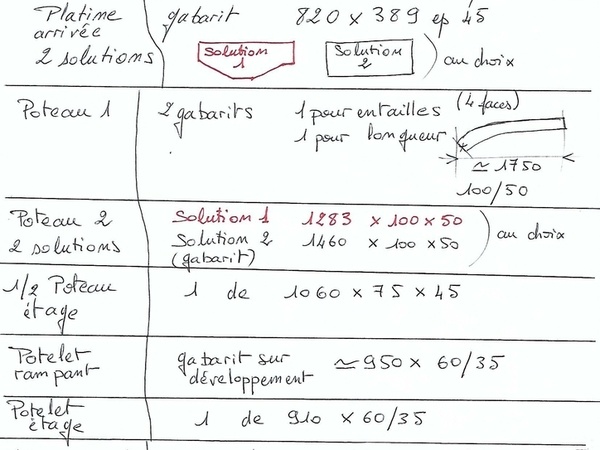 Platine gabarit 820 x 389 ep 45
arrivée
2 solutions Solution 1 Solution 2 au choix
Poteau 1 2 gabarits 1 pour entailles (4 faces)
1 pour longueur
≃ 1750
100/50
Poteau 2 Solution 1 1283 x 100 x 50
2 solutions Solution 2 1460 x 100 x 50 au choix
(gabarit)
1/2 Poteau 1 de 1060 x 75 x 45
étage
Potelet gabarit sur ≃ 950 x 60/35
rampant développement
Potelet 1 de 910 x 60/35
étage